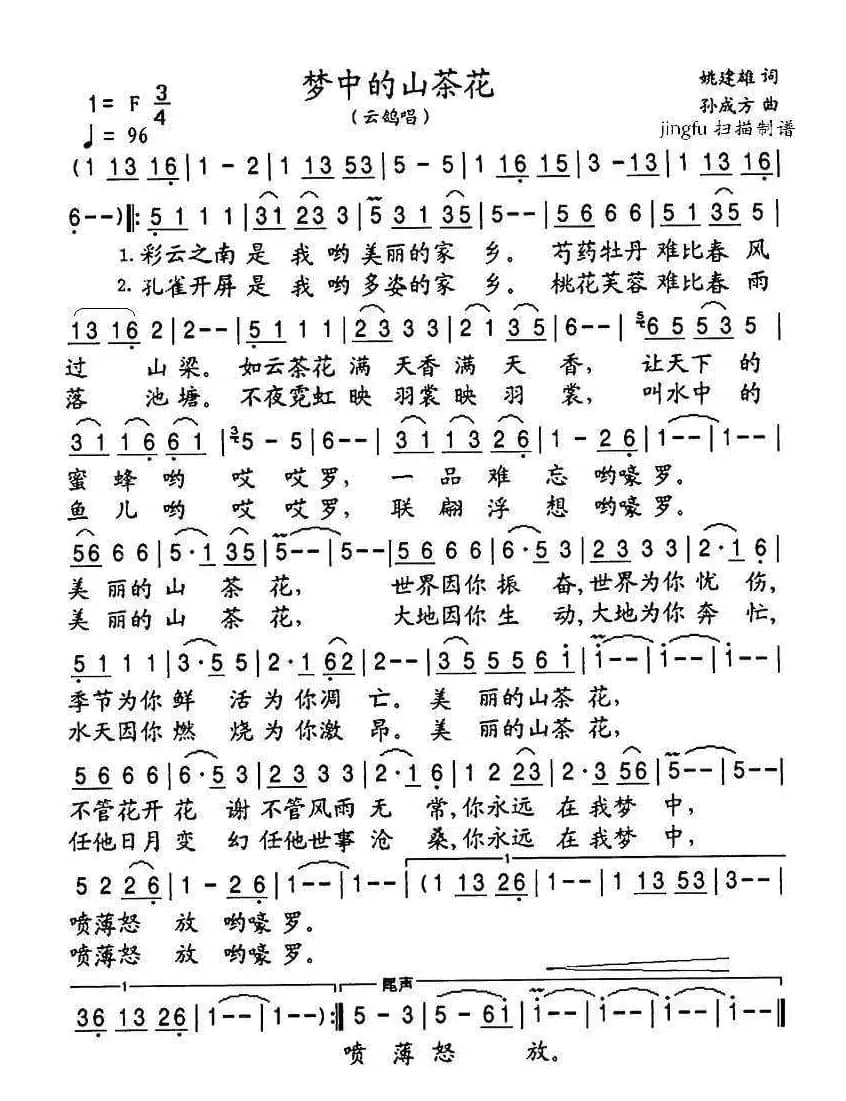 梦中的山茶花
(云鸽唱)
1= F 3/4
♩= 96
姚建雄 词
孙成方 曲
jingfu 扫描制谱
(1 13 16|1 - 2|1 13 53|5 - -|1 16 15|3 - 13|1 13 16|
6 - -)‖: 5 1 1 1|31 23 3|5 31 35|5 - -|5 6 6 6|5 1 35 5|
1.彩云之南是我哟美丽的家乡。芍药牡丹难比春风
2.孔雀开屏是我哟多姿的家乡。桃花芙蓉难比春雨
13 16 2|2 - -|5 1 1 1|2 3 3 3|2 1 35|6 - -|6 5 5 3 5|
过山梁。如云茶花满天香满天香，让天下的
落池塘。不夜霓虹映羽裳映羽裳，叫水中的
3 1 1 6 6 1|5 - 5|6 - -|3 1 1 3 2 6|1 - 2 6|1 - -|1 - -|
蜜蜂哟哎哎罗，一品难忘哟嚎罗。
鱼儿哟哎哎罗，联翩浮想哟嚎罗。
56 6 6|5 · 1 35|5 - -|5 - -|5 6 6 6|6 · 5 3|2 3 3 3|2 · 1 6|
美丽的山茶花，世界因你振奋,世界为你忧伤,
美丽的山茶花，大地因你生动,大地为你奔忙,
5 1 1 1|3 · 5 5|2 · 1 62|2 - -|3 5 5 5 6 i|i - -|i - -|
季节为你鲜活为你凋亡。美丽的山茶花，
水天因你燃烧为你激昂。美丽的山茶花，
5 6 6 6|6 · 5 3|2 3 3 3|2 · 1 6|1 2 23|2 · 3 56|5 - -|5 - -|
不管花开花谢不管风雨无常,你永远在我梦中，
任他日月变幻任他世事沧桑,你永远在我梦中，
1
5 2 2 6|1 - 2 6|1 - -|1 - -|(1 13 26|1 - -|1 13 53|3 - -|
喷薄怒放哟嚎罗。
喷薄怒放哟嚎罗。
1 尾声
36 13 26|1 - -|1 - -):‖ 5 - 3|5 - 6i|i - -|i - -|i - -|i - -‖
喷薄怒放。